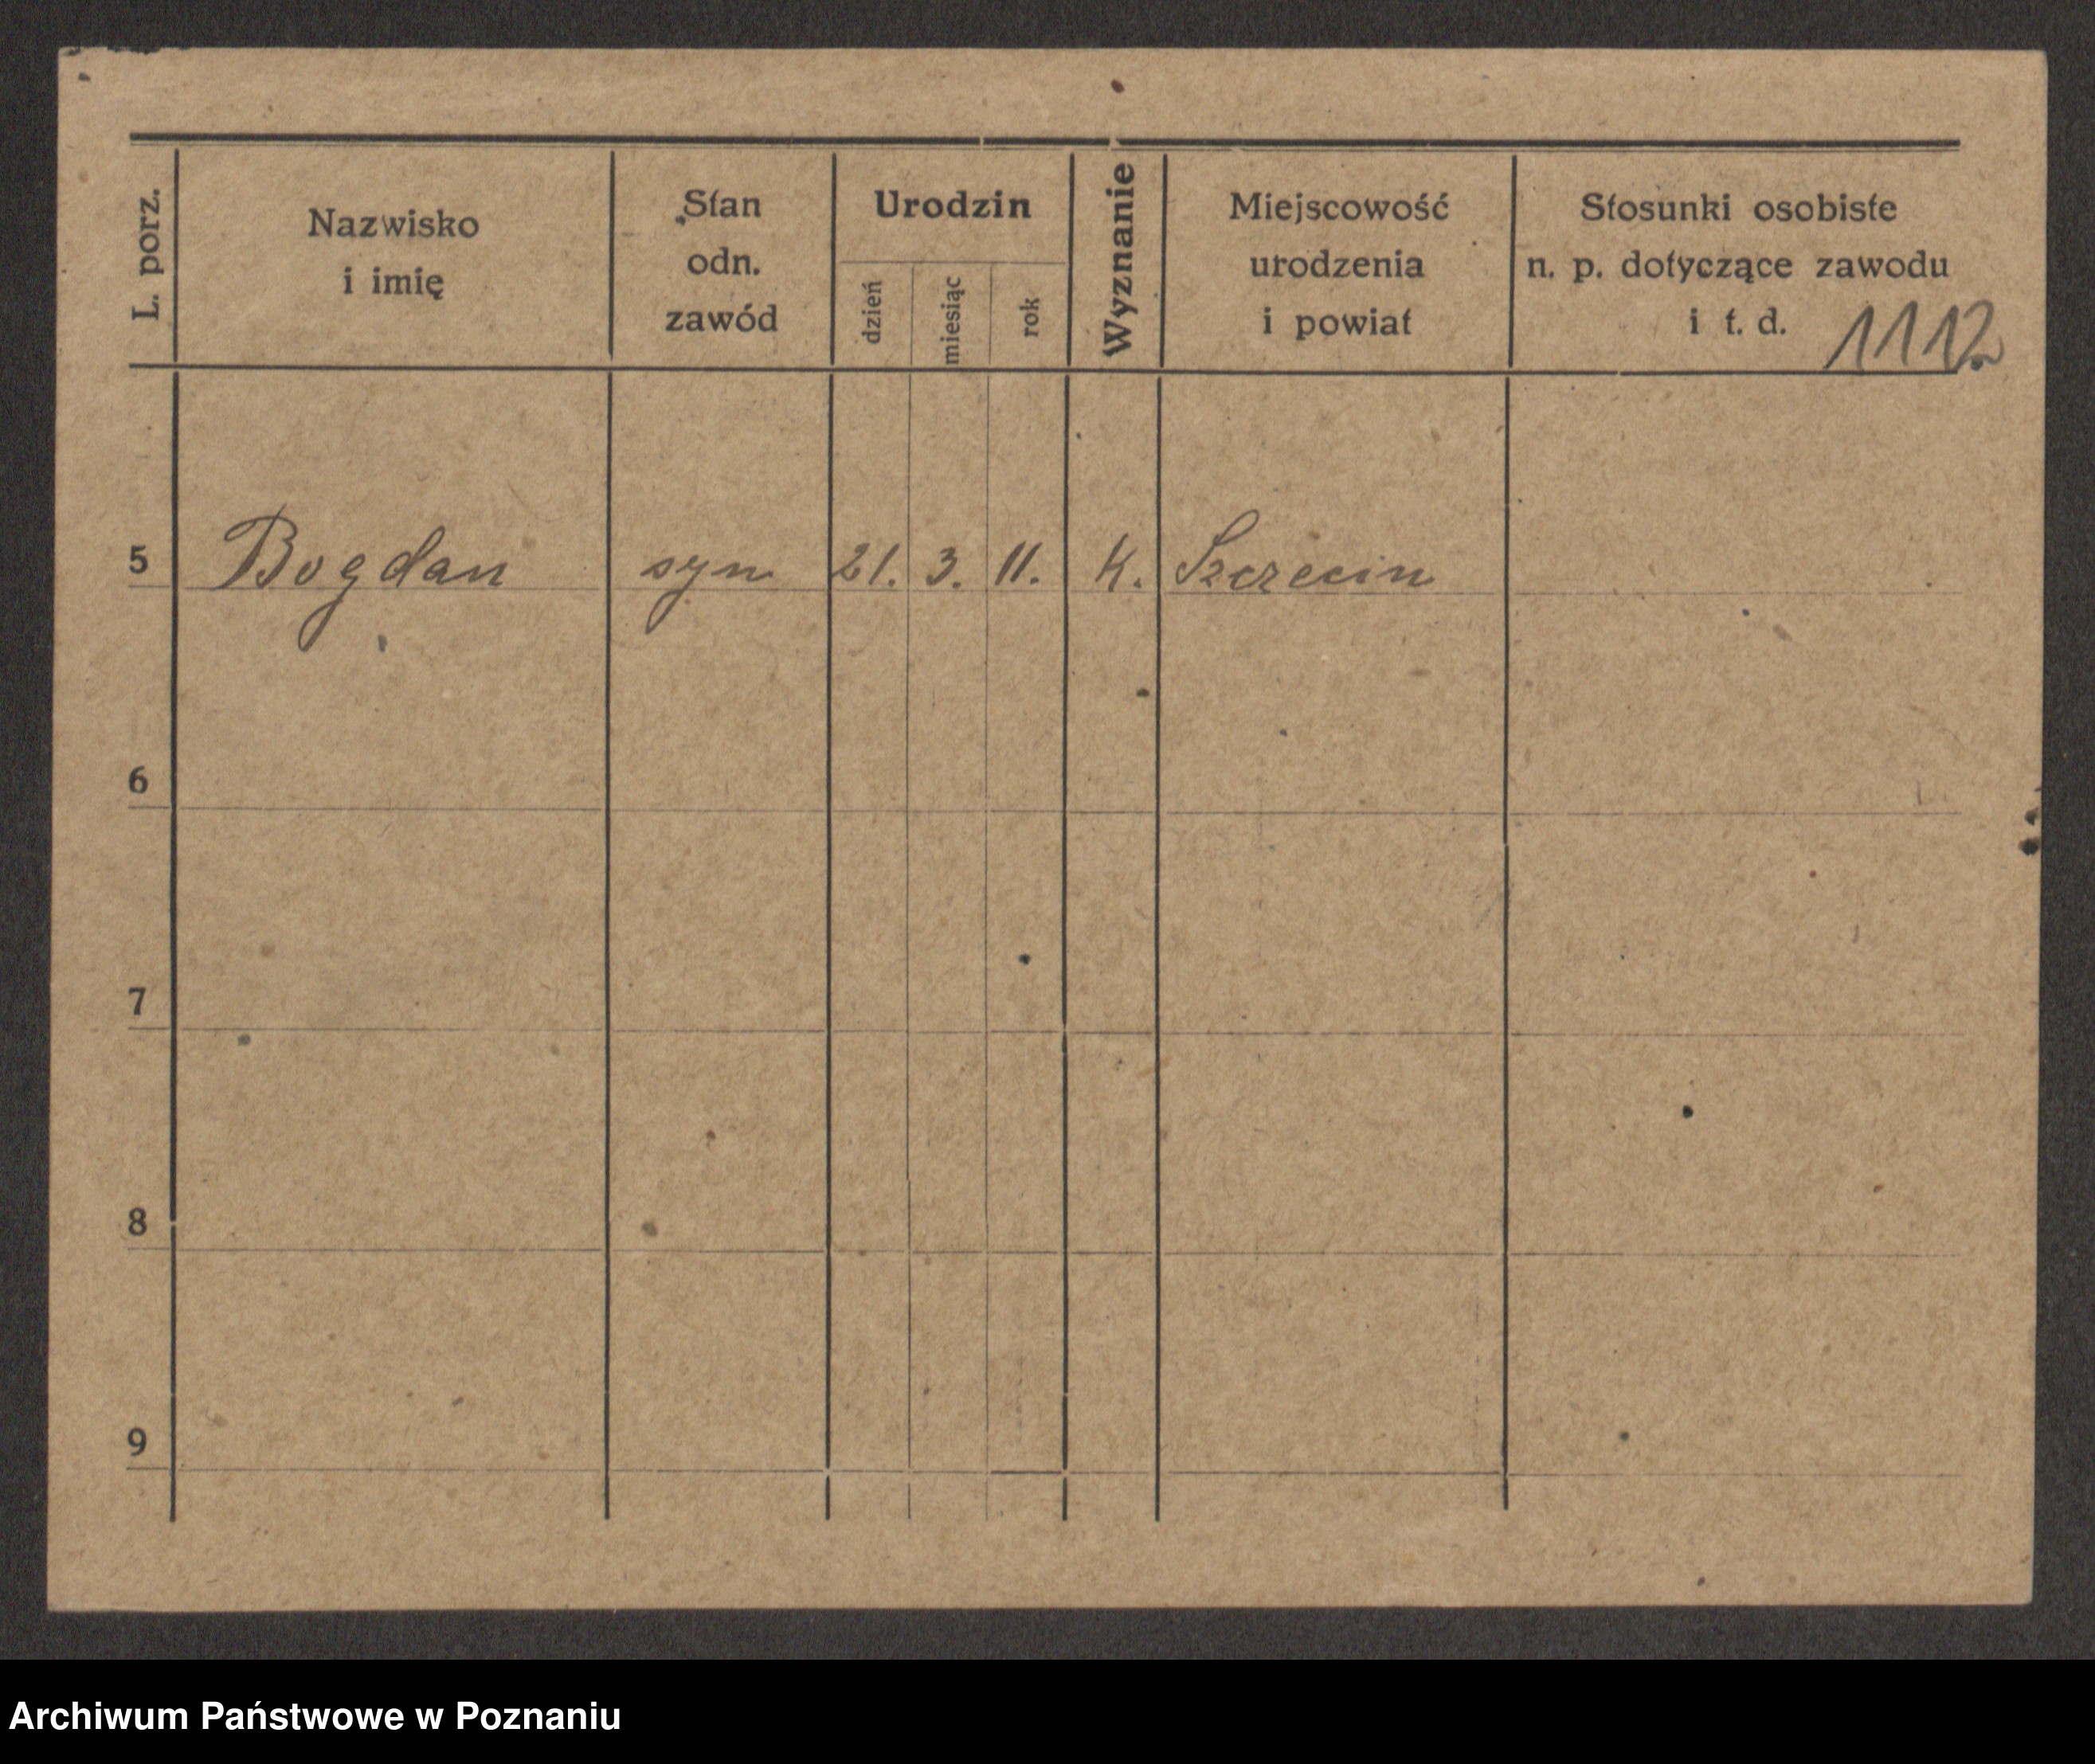 L. porz.
Nazwisko
i imię
Stan
odn.
zawód
Urodzin
dzień
miesiąc
rok
Wyznanie
Miejscowość
urodzenia
i powiat
Stosunki osobiste
n. p. dotyczące zawodu
i t. d.
1112
5 Bogdan syn 21. 3. 11. K. Szczecin
6
7
8
9
Archiwum Państwowe w Poznaniu